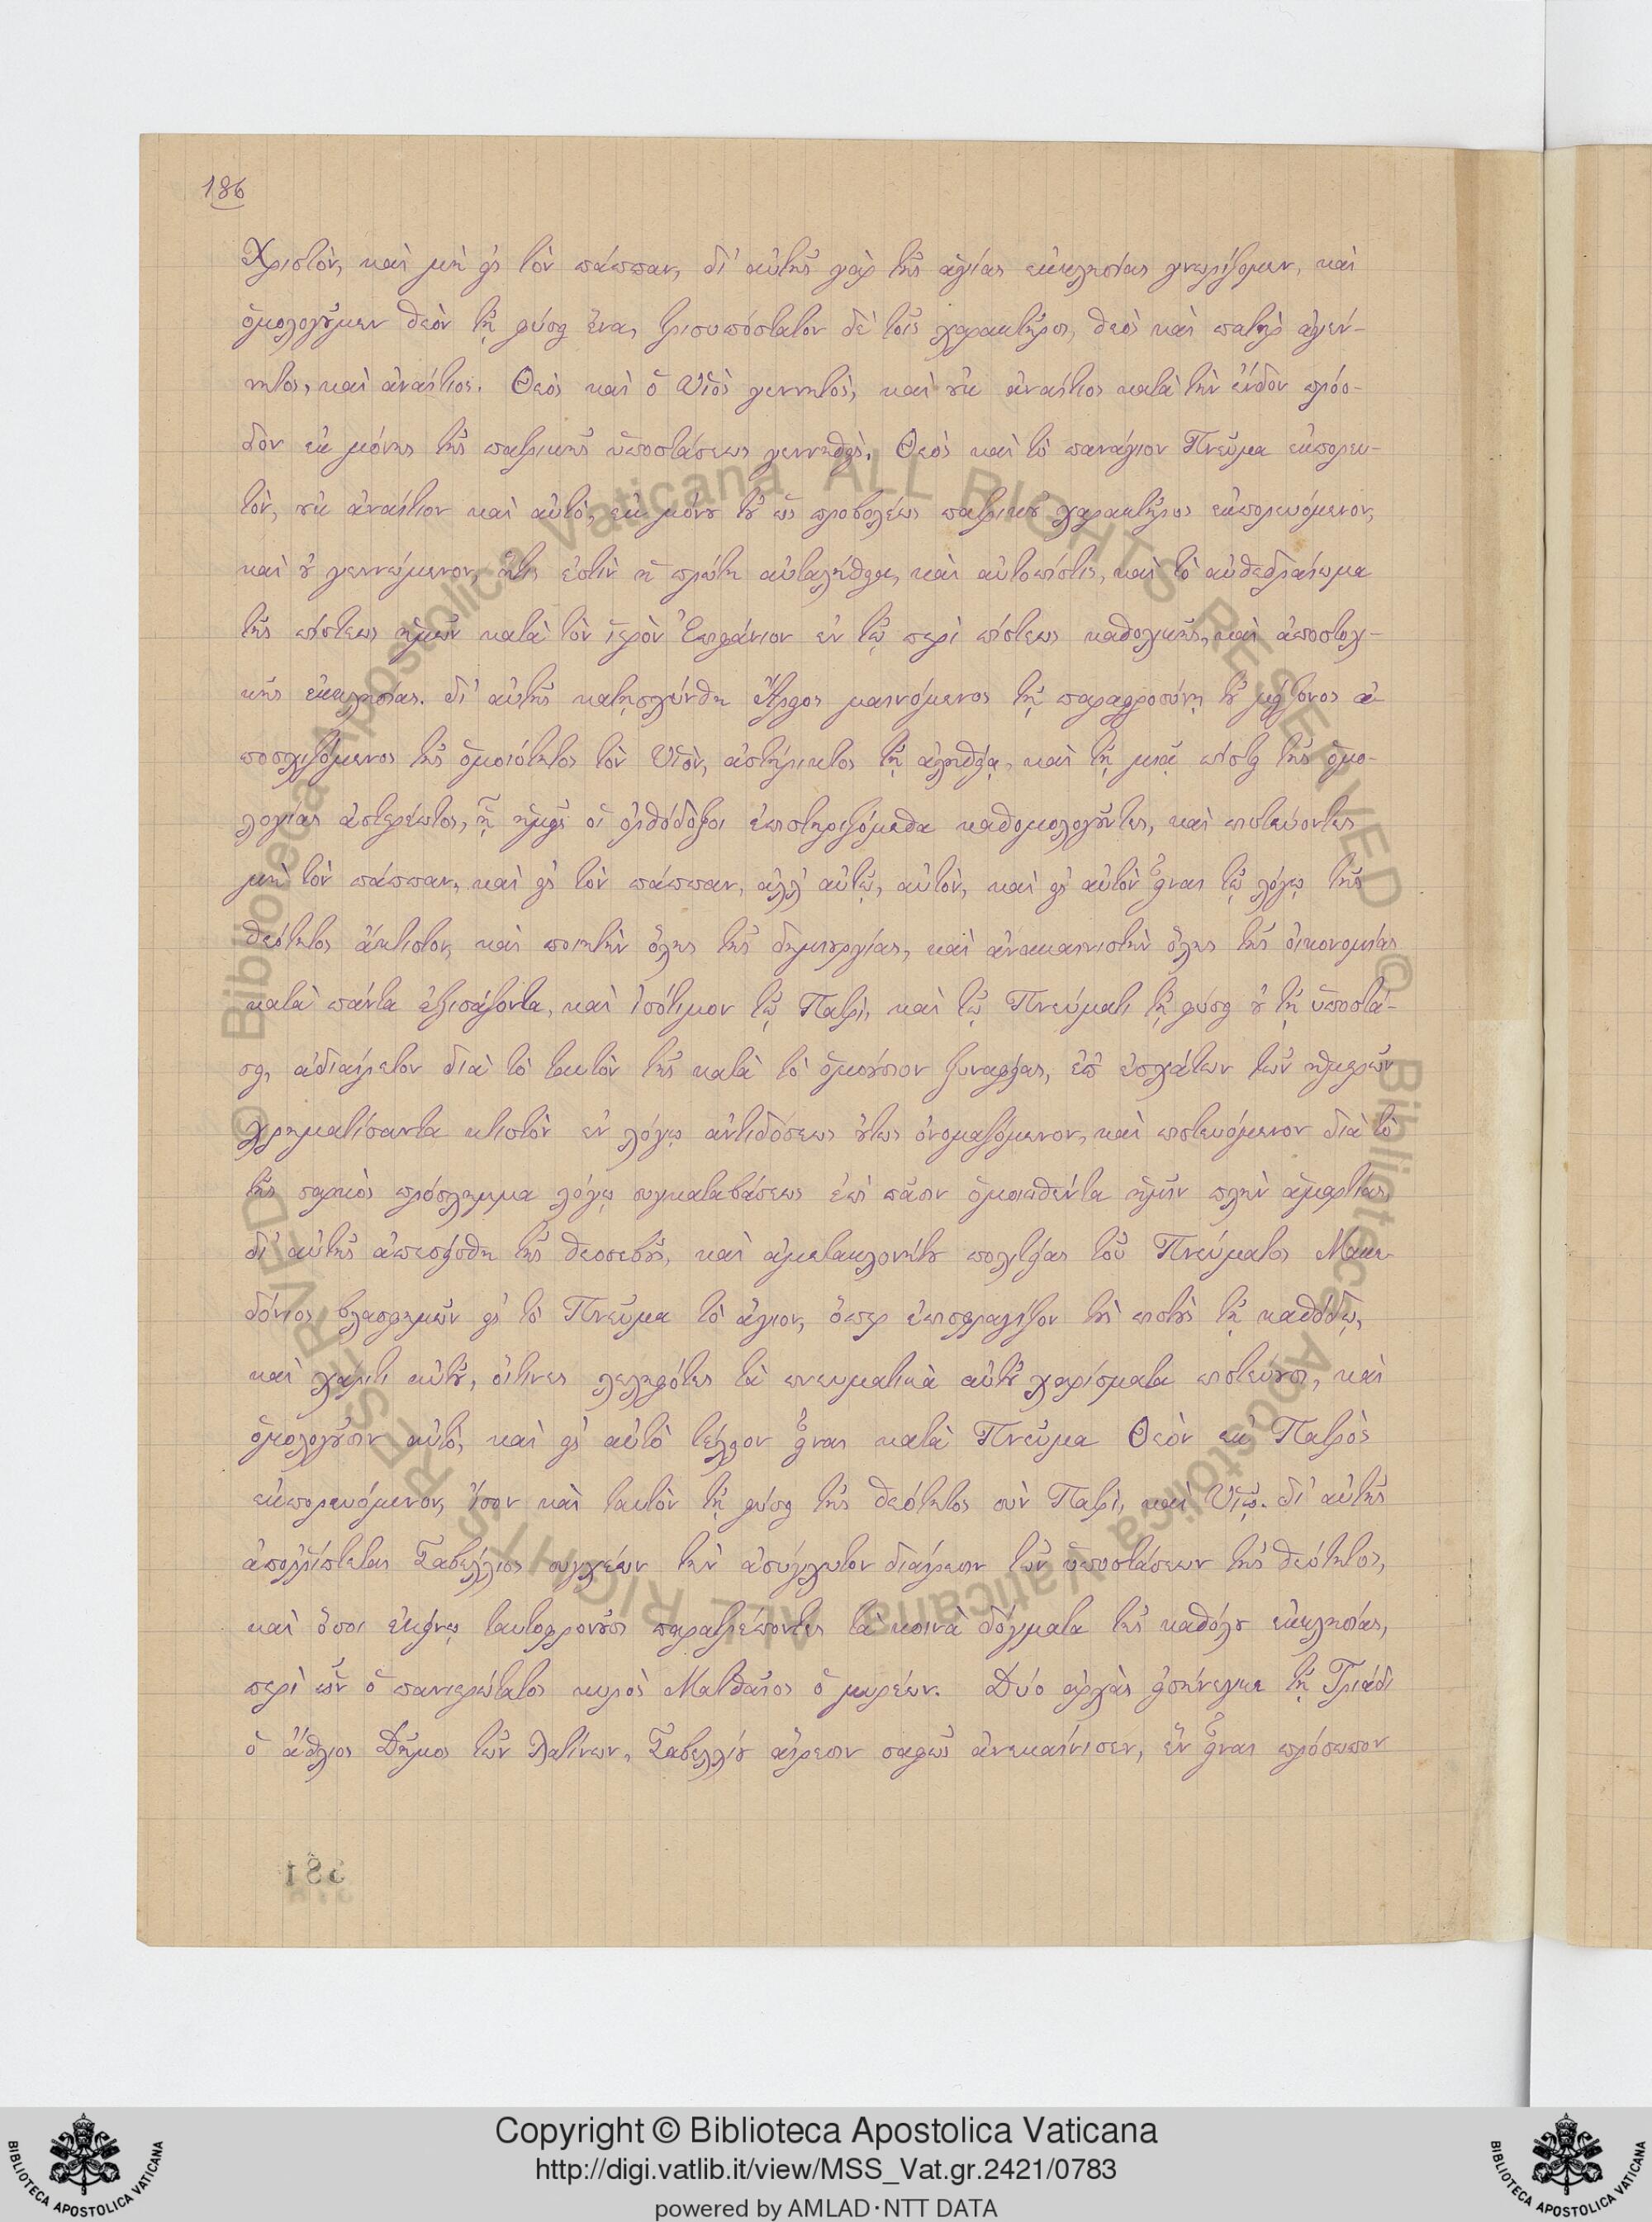 186
Χριστὸν, καὶ μὴ εἰς τὸν πάππαν, δι' αὐτῆς γὰρ τῆς ἁγίας ἐκκλησίας γνωρίζομεν, καὶ
ὁμολογοῦμεν θεὸν τῇ φύσει ἕνα, τρισυπόστατον δὲ τοῖς χαρακτῆρσι, θεὸς καὶ πατὴρ ἀγέν-
νητος, καὶ ἀναίτιος. Θεὸς καὶ ὁ Υἱὸς γεννητὸς, καὶ οὐκ ἀναίτιος κατὰ τὴν ἔνδον πρόο-
δον ἐκ μόνης τῆς πατρικῆς ὑποστάσεως γεννηθεὶς. Θεὸς καὶ τὸ πανάγιον Πνεῦμα ἐκπορευ-
τὸν, οὐκ ἀναίτιον καὶ αὐτὸ, ἐκ μόνου τοῦ ὡς προβολέως πατρικοῦ χαρακτῆρος ἐκπορευόμενον,
καὶ οὐ γεννώμενον, ἥτις ἐστὶν ἡ πρώτη αὐταλήθεια, καὶ αὐτοπίστις, καὶ τὸ αὐθεδραίωμα
τῆς πίστεως ἡμῶν κατὰ τὸν ἱερὸν Ἐπιφάνιον ἐν τῷ περὶ πίστεως καθολικῆς, καὶ ἀποστολι-
κῆς ἐκκλησίας. δι' αὐτῆς κατῃσχύνθη Ἄρειος μαινόμενος τῇ παραφροσύνῃ τοῦ μείζονος ἀ-
ποσχιζόμενος τῆς ὁμοιότητος τὸν Υἱὸν, ἀστήρικτος τῇ ἀληθείᾳ, καὶ τῇ μιᾷ πίστει τῆς ὁμο-
λογίας ἀστερέωτος, ᾗ ἡμεῖς οἱ ὀρθόδοξοι ἐπιστηριζόμεθα καθομολογοῦντες, καὶ πιστεύοντες
μὴ τὸν πάππαν, καὶ εἰς τὸν πάππαν, ἀλλ' αὐτῷ, αὐτὸν, καὶ εἰς αὐτὸν εἶναι τῷ λόγῳ τῆς
θεότητος ἄκτιστον, καὶ ποιητὴν ὅλης τῆς δημιουργίας, καὶ ἀνακαινιστὴν ὅλης τῆς οἰκονομίας
κατὰ πάντα ἐξισάζοντα, καὶ ἰσότιμον τῷ Πατρὶ, καὶ τῷ Πνεύματι τῇ φύσει οὐ τῇ ὑποστά-
σει, ἀδιαίρετον διὰ τὸ ταυτὸν τῆς κατὰ τὸ ὁμοούσιον ξυναφείας, ἐπ' ἐσχάτων τῶν ἡμερῶν
χρηματίσαντα κτιστὸν ἐν λόγῳ ἀντιδόσεως οὕτως ὀνομαζόμενον, καὶ πιστευόμενον διὰ τὸ
τῆς σαρκὸς πρόσλημμα λόγῳ συγκαταβάσεως ἐπὶ πᾶσιν ὁμοιωθέντα ἡμῖν πλὴν ἁμαρτίας,
δι' αὐτῆς ἀπεσείσθη τῆς θεοσεβοῦς, καὶ ἀμετακλονήτου πολιτείας τοῦ Πνεύματος Μακε-
δόνιος βλασφημῶν εἰς τὸ Πνεῦμα τὸ ἅγιον, ὅπερ ἐπισφραγίζον τοὺς πιστοὺς τῇ καθόδῳ,
καὶ χάριτι αὐτοῦ, οἵτινες εἰληφότες τὰ πνευματικὰ αὐτοῦ χαρίσματα πιστεύουσι, καὶ
ὁμολογοῦσιν αὐτὸ, καὶ εἰς αὐτὸ τέλειον εἶναι κατὰ Πνεῦμα Θεὸν ἐκ Πατρὸς
ἐκπορευόμενον, ἴσον καὶ ταυτὸν τῇ φύσει τῆς θεότητος σὺν Πατρὶ, καὶ Υἱῷ. δι' αὐτῆς
ἀποῤῥίπτεται Σαβέλλιος συγχέων τὴν ἀσύγχυτον διαίρεσιν τῶν ὑποστάσεων τῆς θεότητος,
καὶ ὅσοι ἐκείνῳ ταυτοφρονοῦσι παρατρέποντες τὰ κοινὰ δόγματα τῆς καθόλου ἐκκλησίας,
περὶ ὧν ὁ πανιερώτατος κυρὸς Ματθαῖος ὁ μυρέων. Δύο ἀρχὰς εἰσήνεγκε τῇ Τριάδι
ὁ ἄθλιος Δῆμος τῶν Λατίνων, Σαβελλίου αἵρεσιν σαφῶς ἀνεκαίνισεν, ἓν εἶναι πρόσωπον
381
Copyright © Biblioteca Apostolica Vaticana
http://digi.vatlib.it/view/MSS_Vat.gr.2421/0783
powered by AMLAD·NTT DATA